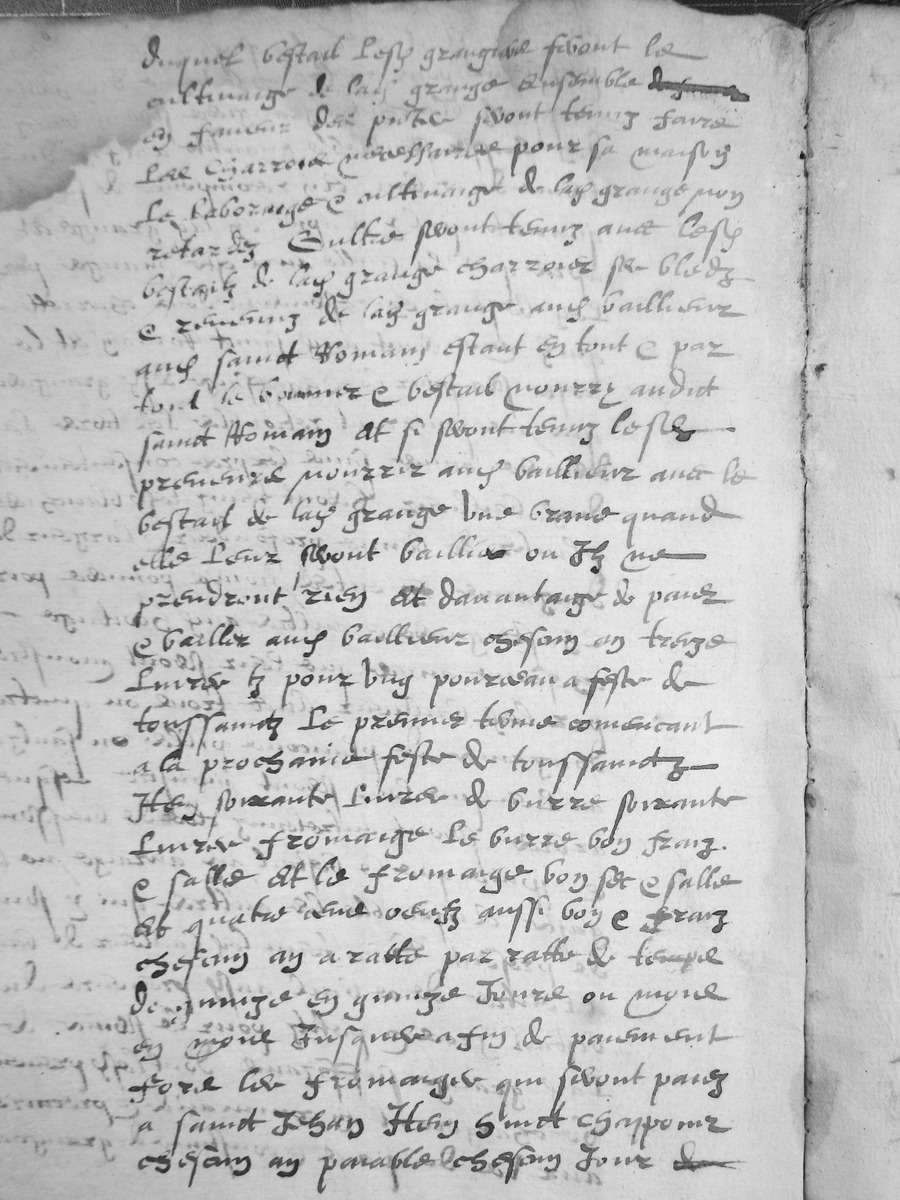 duquel bestail lesd grangiers seront le
cultivaige de lad grange ensemble
en faveur des putes seront tenuz faire
les charrois necessaires pour sa maison
le labouraige & cultivaige de lad grange non
retardez Oultre seront tenuz avec lesd
bestailz de lad grange charroier ses bledz
& revenuz de lad grange aud bailleur
aud sainct Romain estant en tout & par
tout le bouvier & bestail nourry audict
sainct Romain Et si seront tenuz lesd
preneurs nourrir aud bailleur avec le
bestail de lad grange une quand
elle leur seront baillie ou Ilz ne
prendront rien Et davantaige de paier
& bailler aud bailleur chescun an treize
livres tz pour ung pourceau a feste de
toussainctz le premier terme comencant
a la prochaine feste de toussainctz
Item soixante livres de burre soixante
livres fromaige le burre bon fraiz
& salle Et le fromaige bon sec & salle
Et quatre cens oeufz aussi bon & fraiz
chescun an a ratte par ratte de temps
de quinze en quinze Jours ou mois
en mois Jusques a fin de paiement
fors les fromaiges qui seront paiez
a sainct Jehan Item huict chappons
chescun an paiable chescun Jour de